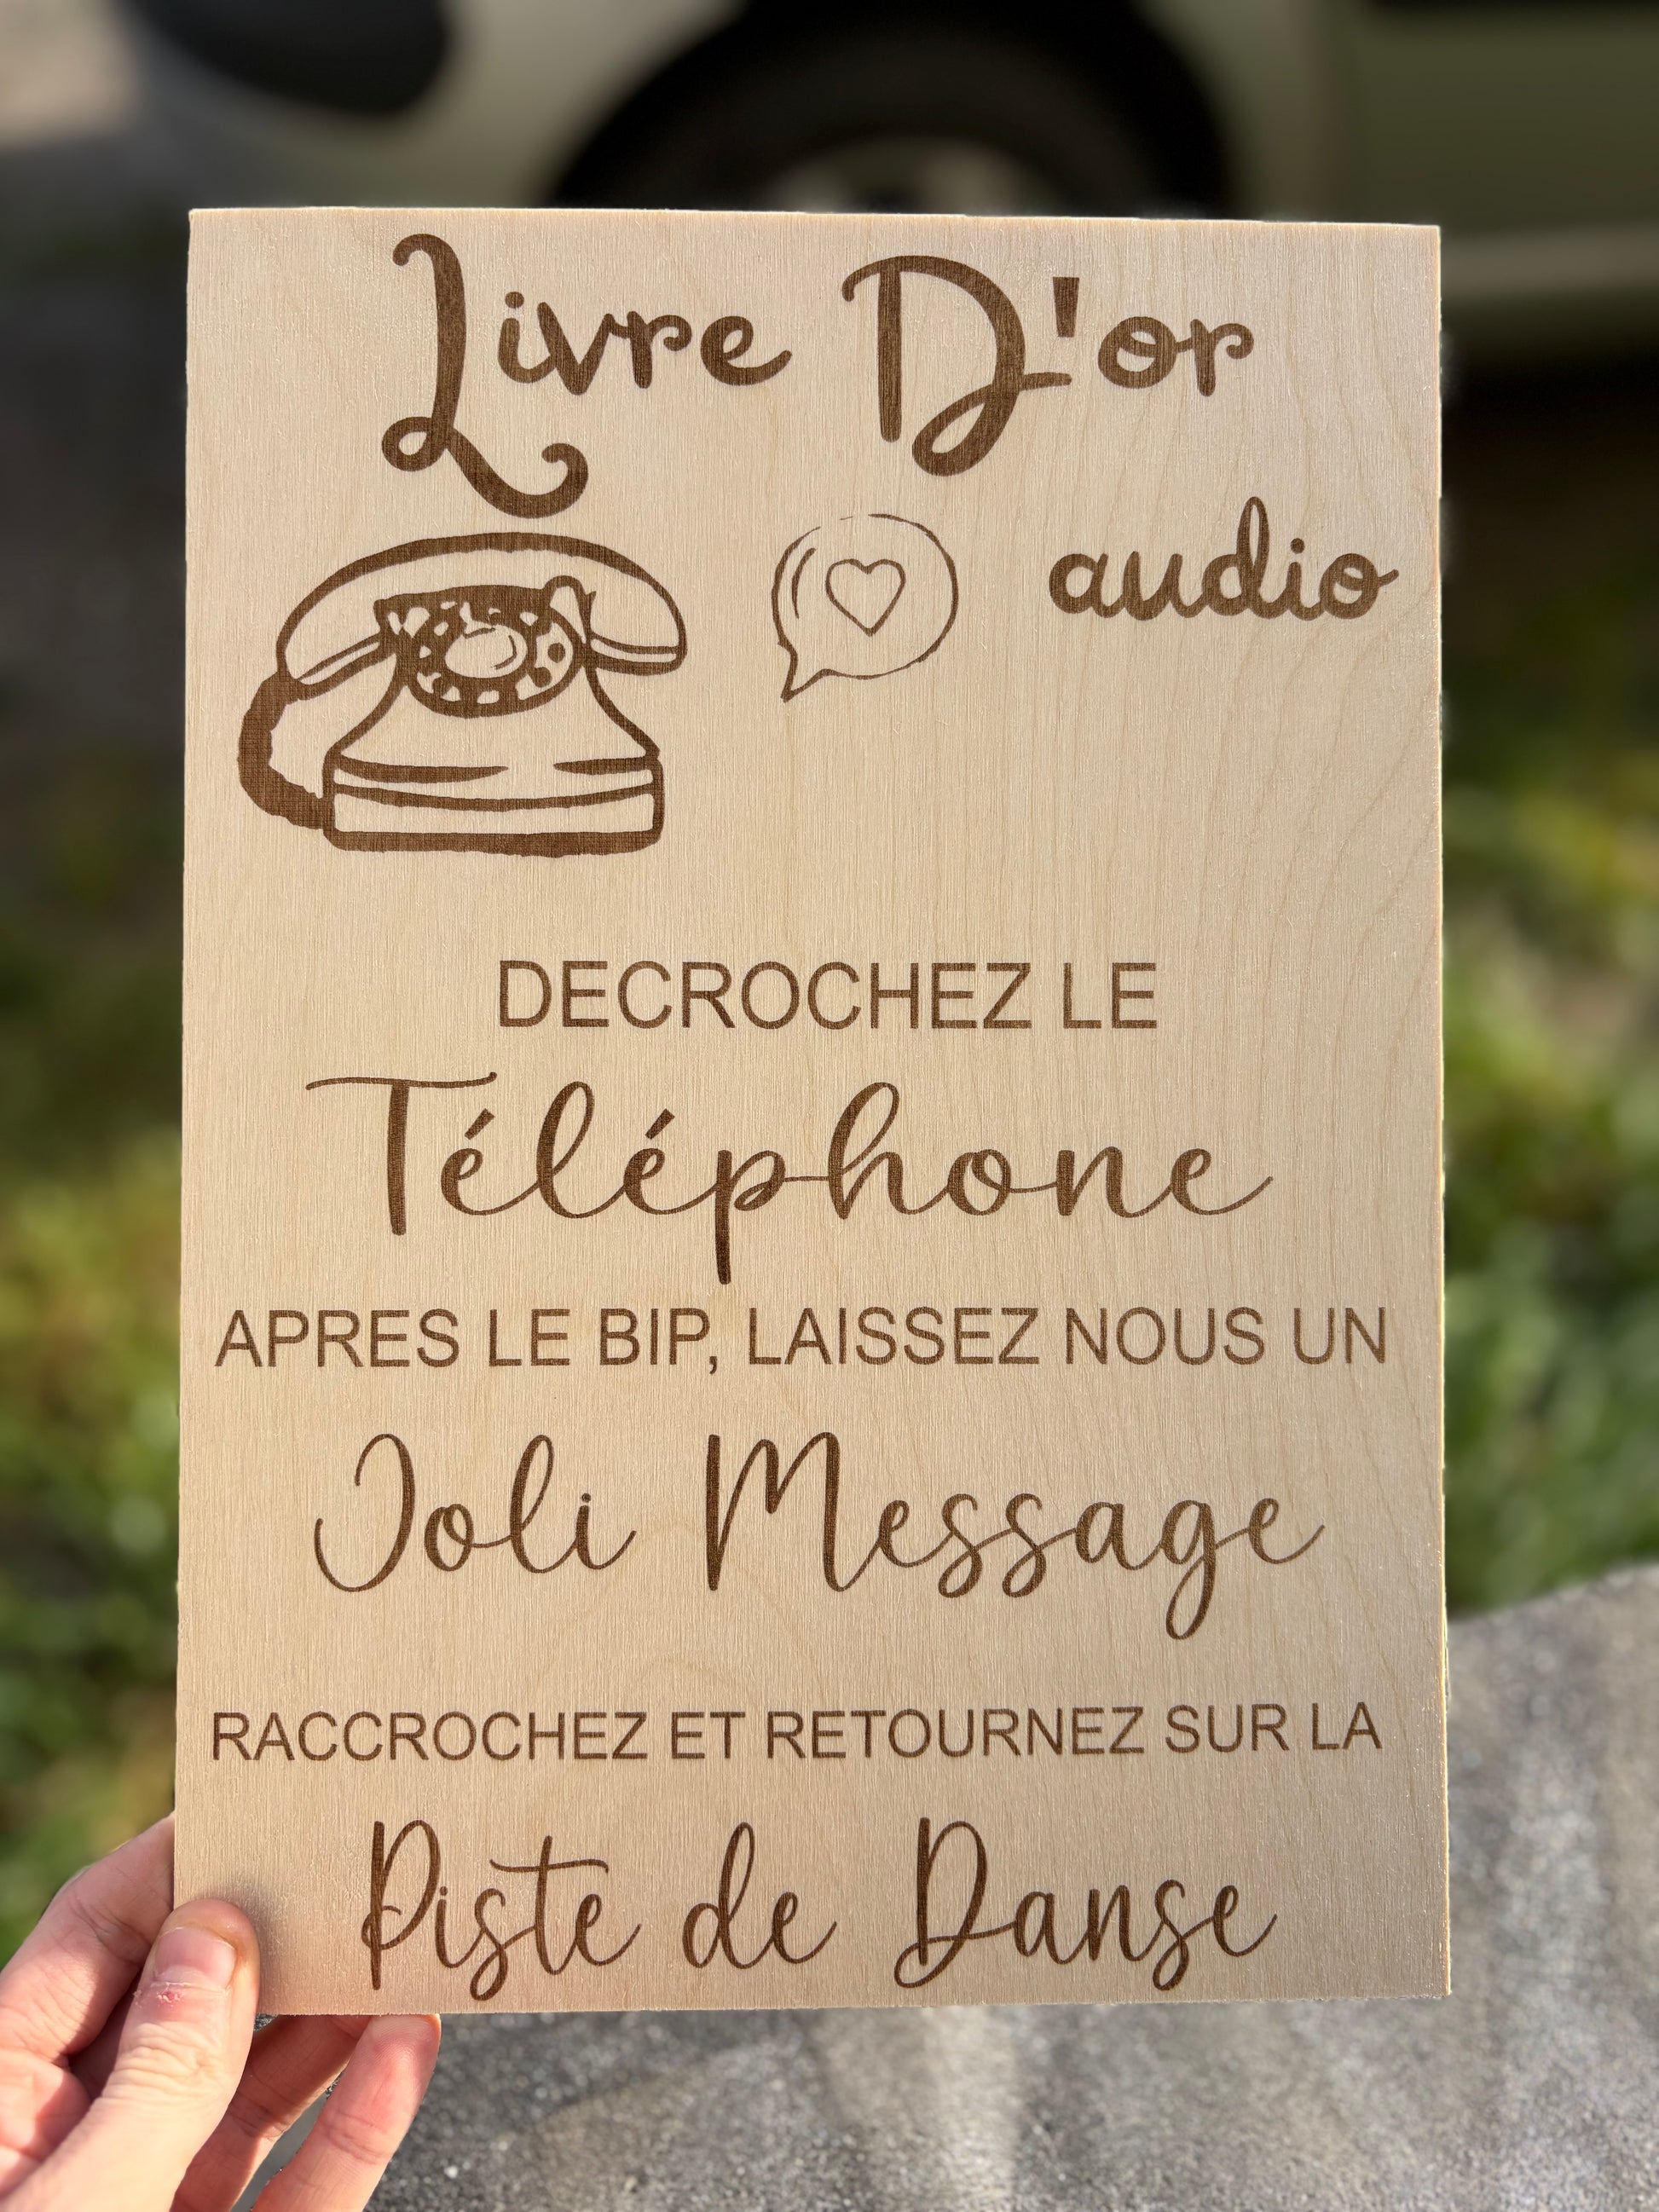 Livre D'or
audio
DECROCHEZ LE
Téléphone
APRES LE BIP, LAISSEZ NOUS UN
Joli Message
RACCROCHEZ ET RETOURNEZ SUR LA
Piste de Danse